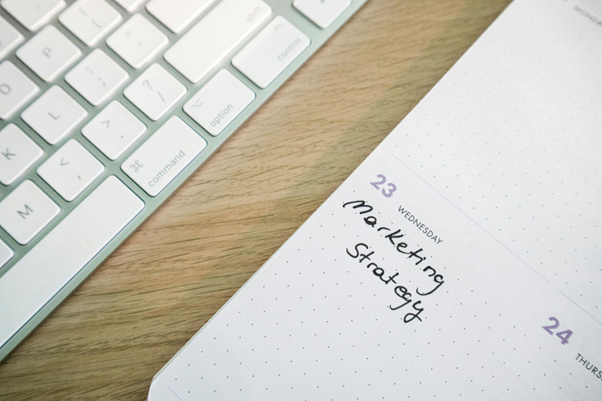 shift
P
: ;
" '
? /
control
O
L
> .
option
K
< ,
⌘
command
M
MONDAY
23
WEDNESDAY
Marketing
Strategy
24
THURS